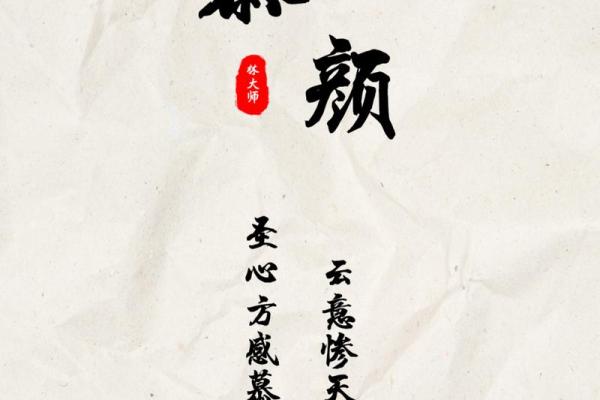 颜
林大师
云意惨天
圣心方感慕